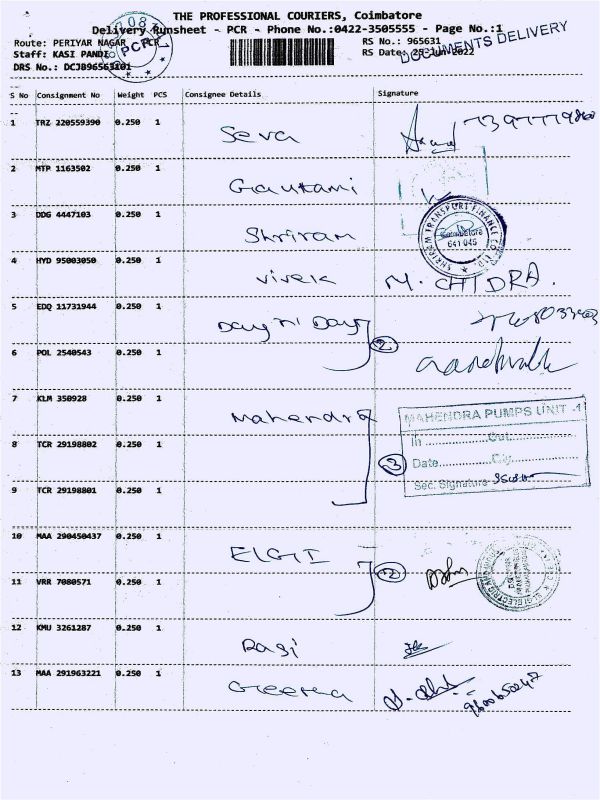 THE PROFESSIONAL COURIERS, Coimbatore
Delivery Runsheet - PCR - Phone No.:0422-3505555 - Page No.:1
Route: PERIYAR NAGAR PCR
RS No.: 965631
DOCUMENTS DELIVERY
Staff: KASI PANDI
RS Date: 25-Jun-2022
DRS No.: DCJ896563101
PCR
S No Consignment No Weight PCS Consignee Details Signature
1 TRZ 220559390 0.250 1 Seva
2 MTP 1163502 0.250 1 Gautami
3 DDG 4447103 0.250 1 Shriram
SHRIRAM TRANSPORT FINANCE CO LTD
Coimbatore
641 045
4 HYD 95003050 0.250 1 Vivek M. CHIDRA.
5 EDQ 11731944 0.250 1 Day n Day
2
6 POL 2540543 0.250 1
7 KLM 350928 0.250 1 Mahendra
MAHENDRA PUMPS UNIT -1
In Out
8 TCR 29198802 0.250 1
3
Date City
Sec. Signature
9 TCR 29198801 0.250 1
10 MAA 290450437 0.250 1 ELGI
2
11 VRR 7080571 0.250 1
12 KMU 3261287 0.250 1 Ragi
13 MAA 291963221 0.250 1 Geetha